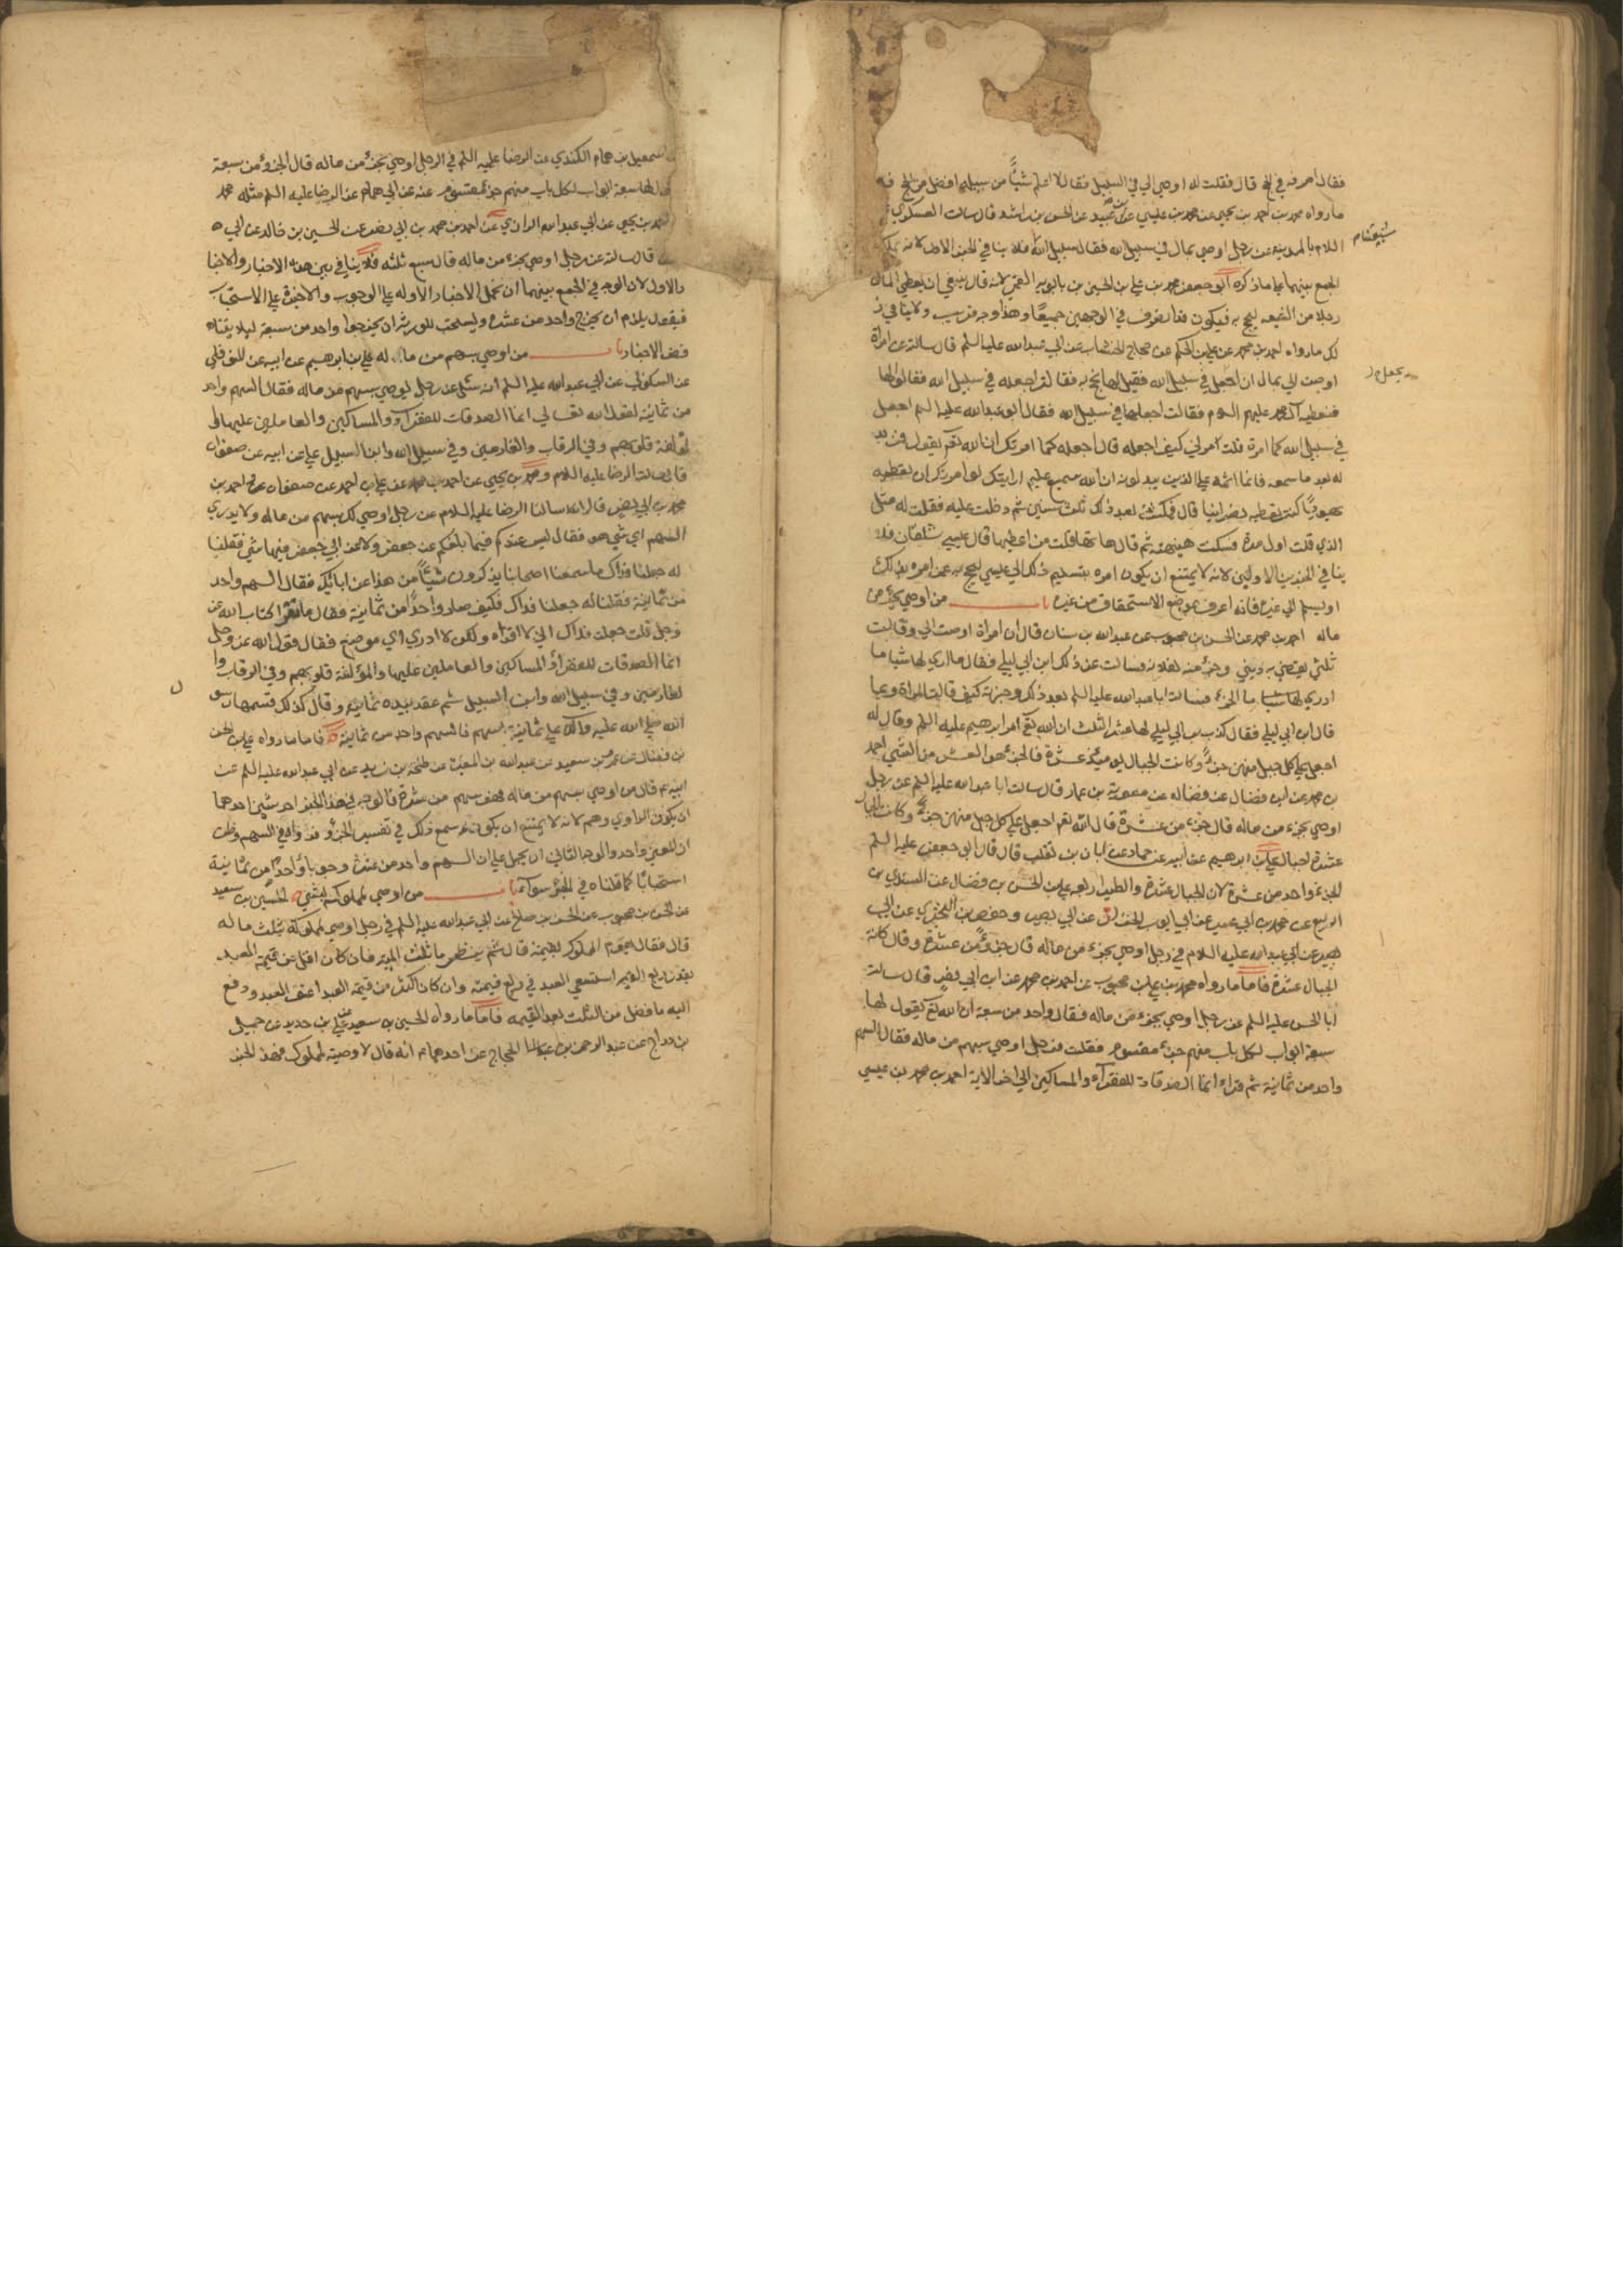 فقال اصرفه في الحج قال فقلت له اوصى الي في السبيل فقال لا اعلم شيئاً من سبيله افضل من الحج فـ
ما رواه محمد بن احمد بن يحيى عن محمد بن عيسى عن محمد بن عبيد عن الحسن بن راشد قال سالت العسكري
السلام بالمدينة عن رجل اوصى بمال في سبيل الله فقال سبيل الله شيعتنا فلا ينافي الخبر الاول لانه يمكن
الجمع بينهما على ما ذكره ابو جعفر محمد بن علي بن الحسين بن بابويه القمي لانه قال ينبغي ان يعطي المال
رجلا من الشيعه ليحج به فيكون قد انصرف في الوجهين جميعًا وهذا وجه قريب ولا ينافي ذ
لك ما رواه احمد بن محمد عن علي بن الحكم عن حجاج الخشاب عن ابي عبد الله عليه السلم قال سالته عن امراة
اوصت الي بمال ان يجعل في سبيل الله فقيل لها نحج به فقالت اجعله في سبيل الله فقالوا لها
فنعطيه آل محمد عليهم السلام فقالت اجعله في سبيل الله فقال ابو عبد الله عليه السلم اجعل
في سبيل الله كما امرت قلت مرني كيف اجعله قال اجعله كما امرتك ان الله تعم يقول فمن بد
له بعد ما سمعه فانما اثمه على الذين يبدلونه ان الله سميع عليم ارايتك لو امرتك ان تعطيه
يهوديًا كنت تعطيه نصرانيا قال فمكثت بعد ذلك ثلث سنين ثم دخلت عليه فقلت له مثل
الذي قلت اول مرة فسكت هنيهة ثم قال هاتها قلت من اعطيها قال عيسى شلقان فلا
ينافي الخبرين الاولين لانه لا يمتنع ان يكون امره بتسليم ذلك الى عيسى ليحج به عمن امره بذلك
او يسلم الى غيره فانه اعرف بموضع الاستحقاق من غيره باب من اوصى بجزء من
ماله احمد بن محمد عن الحسن بن محبوب عن عبد الله بن سنان قال ان امراة اوصت الي وقالت
ثلثي يقضى به ديني وجزء منه لفلانة فسالت عن ذلك ابن ابي ليلى فقال ما ارى لها شيئا ما
ادري ما الجزء فسالت ابا عبد الله عليه السلم بعد ذلك وخبرته كيف قالت المراة وبما
قال ابن ابي ليلى فقال كذب ابن ابي ليلى لها عشر الثلث ان الله تعم امر ابرهيم عليه السلم وقال له
اجعل على كل جبل منهن جزءاً وكانت الجبال يومئذ عشرة فالجزء هو العشر من الشيء احمد
بن محمد عن ابن فضال عن فضاله عن معوية بن عمار قال سالت ابا عبد الله عليه السلم عن رجل
اوصى بجزء من ماله قال جزء من عشرة قال الله تعم اجعل على كل جبل منهن جزءاً وكانت الجبال
عشرة اجبال علي بن ابرهيم عن ابيه عن حماد عن ابان بن تغلب قال قال ابو جعفر عليه السلم
الجزء واحد من عشرة لان الجبال عشرة والطير اربعه علي بن الحسن بن فضال عن السندي بن
الربيع عن محمد بن ابي عمير عن ابي ايوب الخزاز عن ابي بصير وحفص بن البختري عن ابي
بصير عن ابي عبد الله عليه السلام في رجل اوصى بجزء من ماله قال جزء من عشرة وقال كانت
الجبال عشرة فاما ما رواه محمد بن علي بن محبوب عن احمد بن محمد عن ابن ابي نصر قال سالت
ابا الحسن عليه السلم عن رجل اوصى بجزء من ماله فقال واحد من سبعة ان الله تعم يقول لها
سبعة ابواب لكل باب منهم جزء مقسوم فقلت فرجل اوصى بسهم من ماله فقال السهم
واحد من ثمانية ثم قراء انما الصدقات للفقرآء والمساكين الى اخر الاية احمد بن محمد بن عيسى
اسمعيل بن همام الكندي عن الرضا عليه السلم في الرجل اوصى بجزء من ماله قال الجزء من سبعة
لها سبعة ابواب لكل باب منهم جزء مقسوم عنه عن ابي همام عن الرضا عليه السلم مثله محمد
احمد بن يحيى عن ابي عبد الله الرازي عن احمد بن محمد بن ابي نصر عن الحسين بن خالد عن ابي
قال سالته عن رجل اوصى بجزء من ماله قال سبع ثلثه فلا ينافي بين هذه الاخبار والاخبا
ر الاول لان الوجه في الجمع بينهما ان نحمل الاخبار الاوله على الوجوب والاخيرة على الاستحباب
فيقول يلزم ان يخرج واحد من عشرة ويستحب للورثة ان يخرجوا واحد من سبعة ليلا يتنا
قض الاخبار باب من اوصى بسهم من ماله علي بن ابرهيم عن ابيه عن النوفلي
عن السكوني عن ابي عبد الله عليه السلم انه سئل عن رجل يوصي بسهم من ماله فقال السهم واحد
من ثمانية لقول الله تعالى انما الصدقات للفقرآء والمساكين والعاملين عليها والم
ؤلفة قلوبهم وفي الرقاب والغارمين وفي سبيل الله وابن السبيل علي عن ابيه عن صفوان
قال سالت الرضا عليه السلام ومحمد بن يحيى عن احمد بن محمد عن علي بن احمد عن صفوان عن احمد بن
محمد بن ابي نصر قالا سالنا الرضا عليه السلام عن رجل اوصى لك بسهم من ماله ولا يدري
السهم اي شي هو فقال ليس عندكم فيما بلغكم عن جعفر ولا عن ابي جعفر فيها شي فقلنا
له جعلنا فداك ما سمعنا اصحابنا يذكرون شيئاً من هذا عن ابائك فقال السهم واحد
من ثمانية فقلنا له جعلنا فداك فكيف صار واحداً من ثمانية فقال ما تقرا كتاب الله عز
وجل قلت جعلت فداك اني لا اقراه ولكن لا ادري اي موضع فقال قول الله عز وجل
انما الصدقات للفقرآء والمساكين والعاملين عليها والمؤلفة قلوبهم وفي الرقاب وا
لغارمين وفي سبيل الله وابن السبيل ثم عقد بيده ثمانية وقال كذلك قسمها رسو
الله صلى الله عليه وآله على ثمانية اسهم فالسهم واحد من ثمانية فاما ما رواه علي بن الحسن
بن فضال عن عمرو بن سعيد عن عبد الله بن المغيرة عن طلحة بن زيد عن ابي عبد الله عليه السلم عن
ابيه قال من اوصى بسهم من ماله فهو سهم من عشرة فالوجه في هذا الخبر احد شيئين احدهما
ان يكون الراوي وهم لانه لا يمتنع ان يكون سمع ذلك في تفسير الجزء فرواه في السهم وظن
ان المعنى واحد والوجه الثاني ان يحمل على ان السهم واحد من عشرة وجوبا وواحداً من ثمانية
استحبابًا كما قلناه في الجزء سوآء باب من اوصى لمملوكه بشيء الحسين بن سعيد
عن الحسن بن محبوب عن الحسن بن صالح عن ابي عبد الله عليه السلم في رجل اوصى لمملوك له بثلث ماله
قال فقال يقوم المملوك بقيمة قال ثم ينظر ما ثلث الميت فان كان اقل من قيمة العبد
بقدر ربع القيمه استسعي العبد في ربع قيمته وان كان اكثر من قيمة العبد اعتق العبد ودفع
اليه ما فضل من الثلث بعد القيمه فاما ما رواه الحسين بن سعيد عن علي بن حديد عن جميل
بن دراج عن عبد الرحمن بن الحجاج عن احدهما انه قال لا وصية لمملوك فهذا الخبر